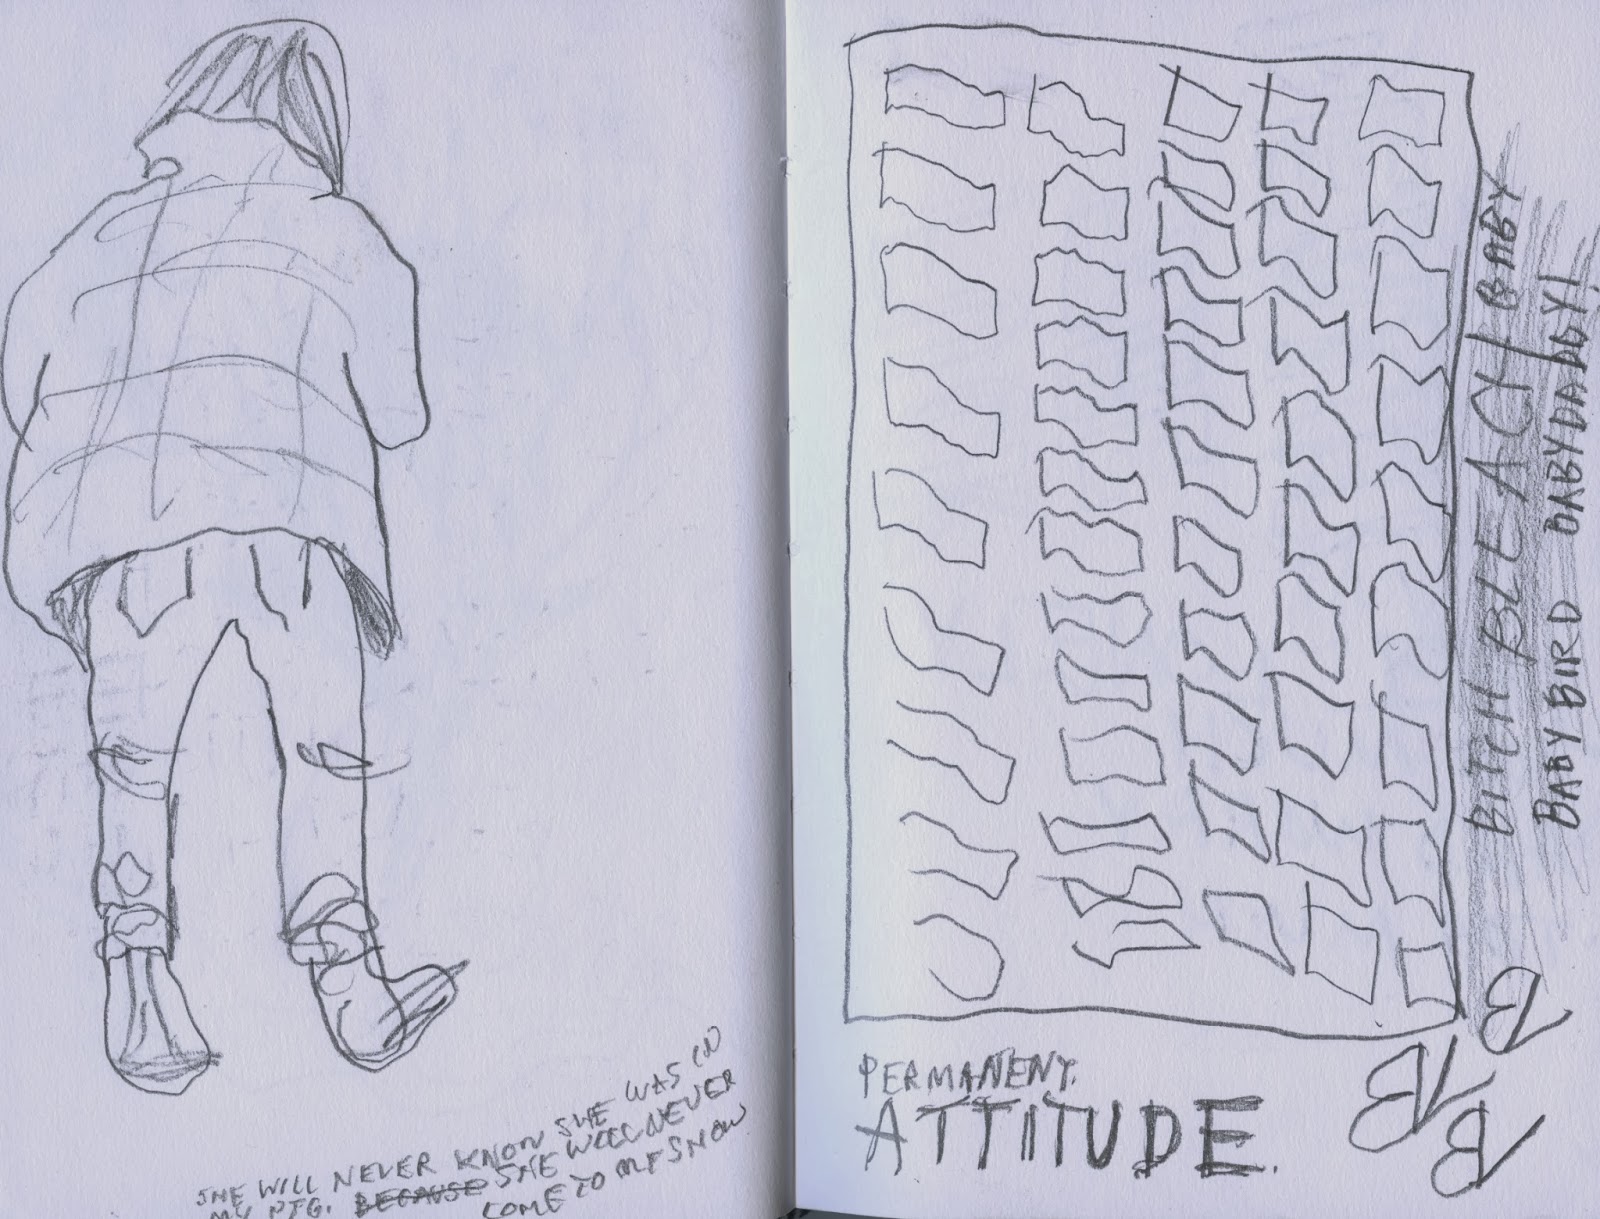 SHE WILL NEVER KNOW SHE WAS IN
MY PTG. BECAUSE SHE WILL NEVER
COME TO MY SHOW
PERMANENT.
ATTITUDE.
BITCH BLEACY/BABY
BABYBIRD BABYDADDY!
B
B
B